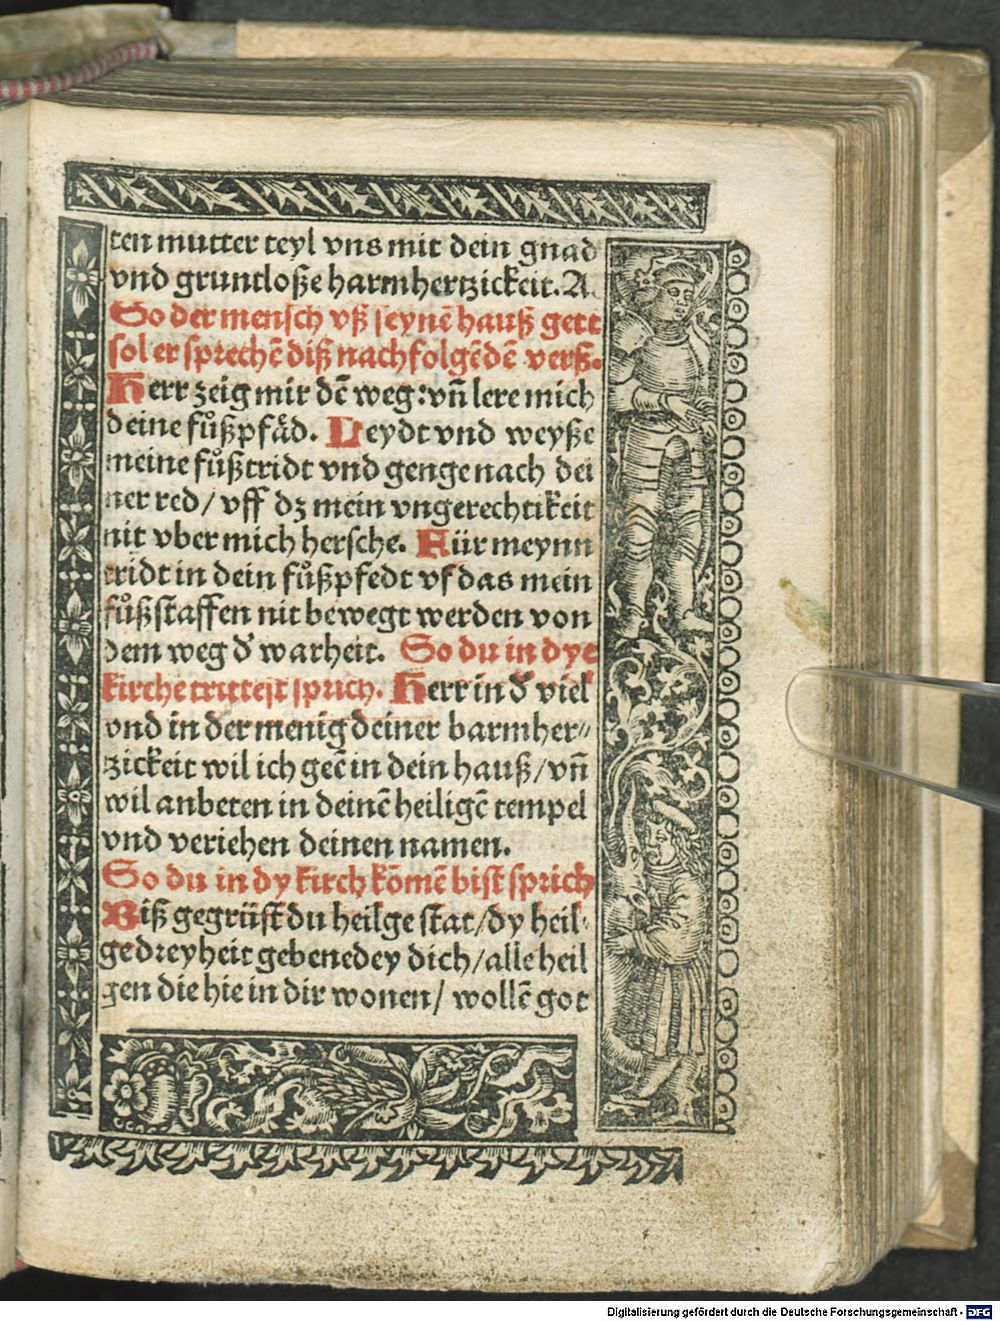 ten mutter teyl vns mit dein gnad
vnd gruntloße harmhertzickeit. A.
So der mensch vß seynē hauß gett
sol er sprechē diß nachfolgēdē verß.
Herr zeig mir dē weg: vn̄ lere mich
deine fůßpfäd. Leydt vnd weyße
meine fůßtridt vnd genge nach dei
ner red / vff dz mein vngerechtikeit
nit vber mich hersche. Für meynn
tridt in dein fůßpfedt vf das mein
fůßstaffen nit bewegt werden von
dem weg d̕ warheit. So du in dye
kirche trittest sprich. Herr in d̕ viel
vnd in der menig deiner barmher⸗
zickeit wil ich geē in dein hauß / vn̄
wil anbeten in deinē heiligē tempel
vnd veriehen deinen namen.
So du in dy kirch kōmē bist sprich
Biß gegrüst du heilge stat / dy heil⸗
ge dreyheit gebenedey dich / alle heil
gen die hie in dir wonen / wollē got
Digitalisierung gefördert durch die Deutsche Forschungsgemeinschaft - DFG